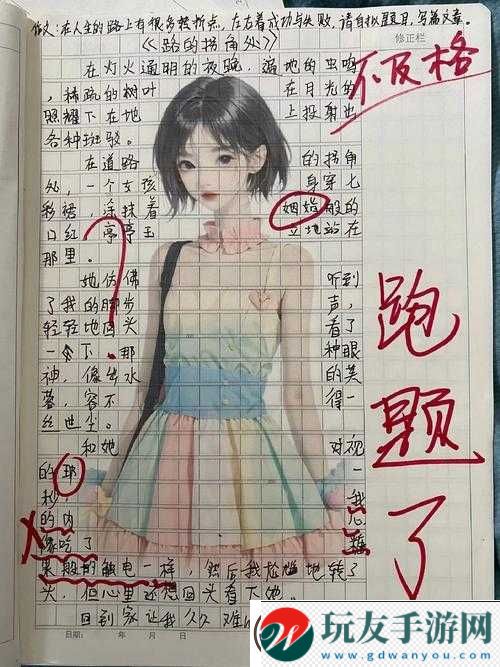 作文:在人生的路上有很多转折点,左右着成功与失败,请自拟题目,写篇文章。
修正栏
《路的拐角处》
不及格
在灯火通明的夜晚,遍地的虫鸣
,稀疏的树叶 在月光的
照耀下在地 上投射出
各种斑驳。
在道路 的拐角
处,一个女孩 身穿七
彩裙,涂抹着 姻娼般的
口红,亭亭玉 立地站在
那里。
?
她仿佛 听到
了我的脚步 声,
轻轻地回头 看了
一下.那 种眼
神,像出水 的芙
蓉,容不 得一
丝世尘。
和她 对视
的那 一
秒, 我
的内 心
像吃了
果般的触电一样,然后我尴尬地转了
头,但心里还想回头看下她。
回到家让我久久难
跑题了
日期: 年 月 日
玩友手游网
www.gdwanyou.com